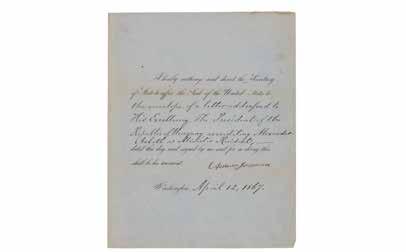 I hereby authorize and direct the Secretary
of State to affix the Seal of the United States to
the envelope of a letter addressed to
His Excellency The President of the
Republic of Uruguay accrediting Alexander
Asboth as Minister Resident,
dated this day and signed by me and for so doing this
shall be his warrant.
Andrew Johnson
Washington, April 12, 1867.